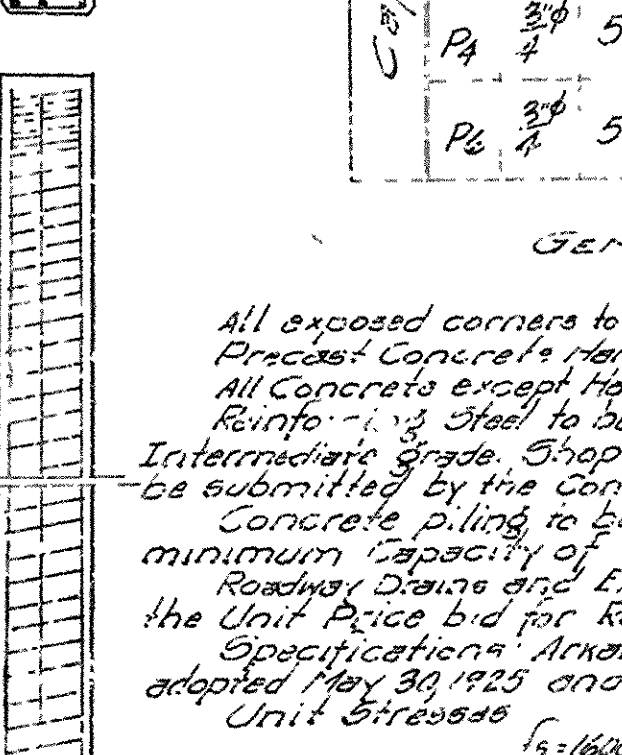 Cap
P4 3/4"φ 5
P6 3/4"φ 5
GEN
All exposed corners to
Precast Concrete Han
All Concrete except Ha
Reinforcing Steel to be
Intermediate grade. Shop
be submitted by the Con
Concrete piling to be
minimum Capacity of
Roadway Drains and Ex
the Unit Price bid for Re
Specifications: Arkan
adopted May 30, 1925 and
Unit Stresses
fs=1600